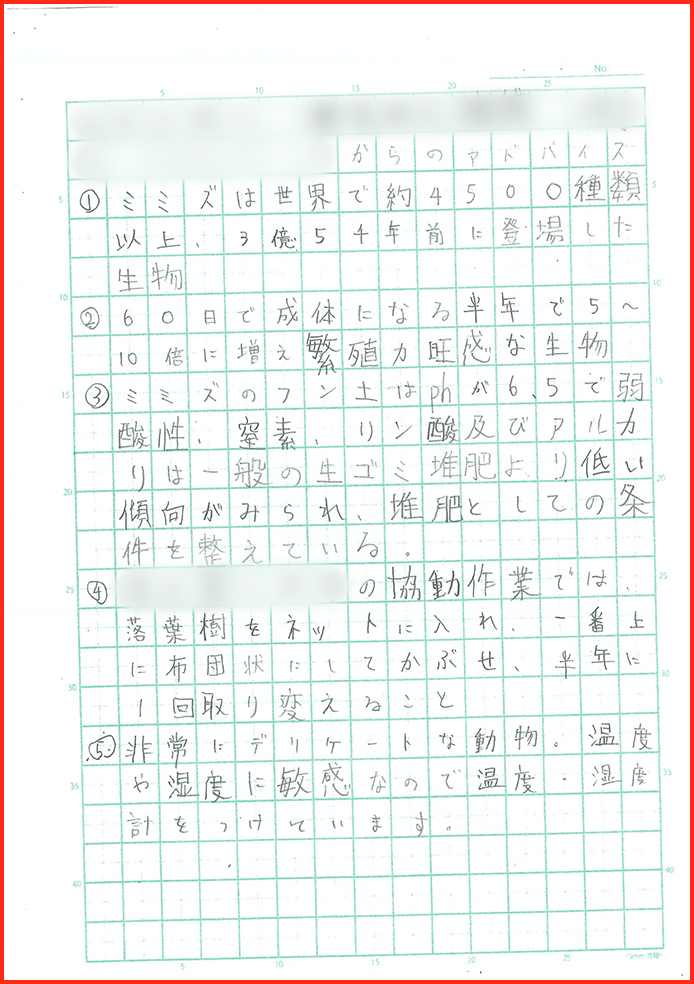 No
からのアドバイス
①ミミズは世界で約4500種類
以上、3億54年前に登場した
生物
②60日で成体になる半年で5～
10倍に増え繁殖力旺感な生物
③ミミズのフン土はphが6.5で弱
酸性、窒素、リン酸及びアルカ
リは一般の生ゴミ堆肥より低い
傾向がみられ、堆肥としての条
件を整えている。
④の協動作業では、
落葉樹をネットに入れ、一番上
に布団状にしてかぶせ、半年に
1回取り変えること
⑤非常にデリケートな動物。温度
や湿度に敏感なので温度・湿度
計をつけています。